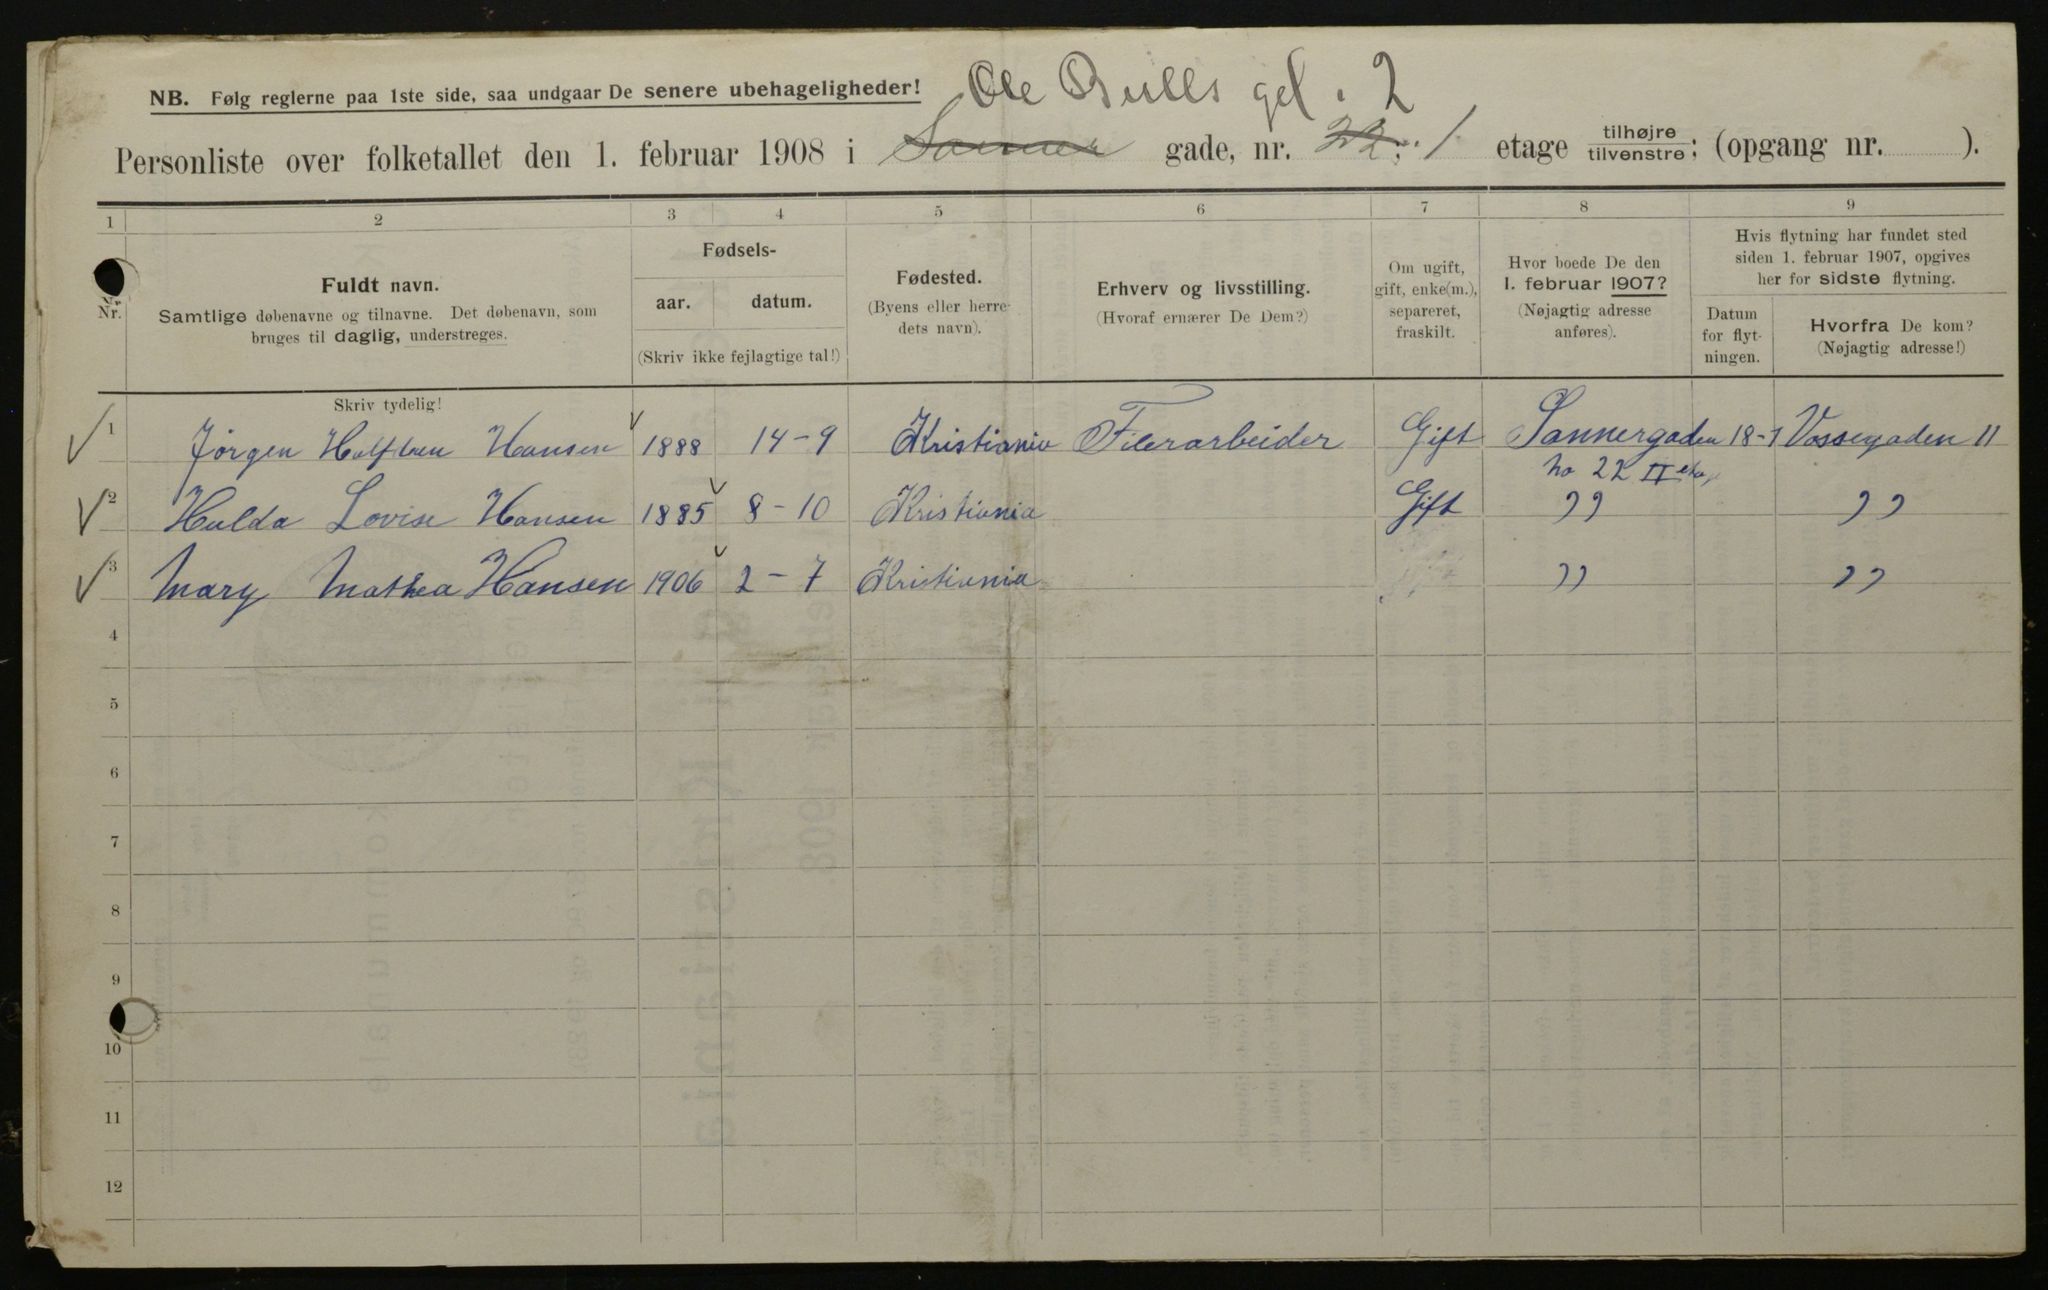 NB. Følg reglerne paa 1ste side, saa undgaar De senere ubehageligheder!
Ole Bulls gd. 2
Personliste over folketallet den 1. februar 1908 i Sanner gade, nr. 22. 1 etage tilhøjre tilvenstre; (opgang nr. ).
1 2 3 4 5 6 7 8 9
Nr.
Fuldt navn.
Samtlige døbenavne og tilnavne. Det døbenavn, som
bruges til daglig, understreges.
Skriv tydelig!
Fødsels-
aar. datum.
(Skriv ikke fejlagtige tal!)
Fødested.
(Byens eller herre-
dets navn).
Erhverv og livsstilling.
(Hvoraf ernærer De Dem?)
Om ugift,
gift, enke(m.),
separeret,
fraskilt.
Hvor boede De den
1. februar 1907?
(Nøjagtig adresse
anføres).
Hvis flytning har fundet sted
siden 1. februar 1907, opgives
her for sidste flytning.
Datum
for flyt-
ningen.
Hvorfra De kom?
(Nøjagtig adresse!)
1 Jørgen Halfdan Hansen 1888 14-9 Kristiania Filerarbeider Gift Sannergaden 18-7 Vossegaden 11
no 22 II etag
2 Hulda Lovise Hansen 1885 8-10 Kristiania Gift " "
3 Mary Mathea Hansen 1906 2-7 Kristiania " "
4
5
6
7
8
9
10
11
12